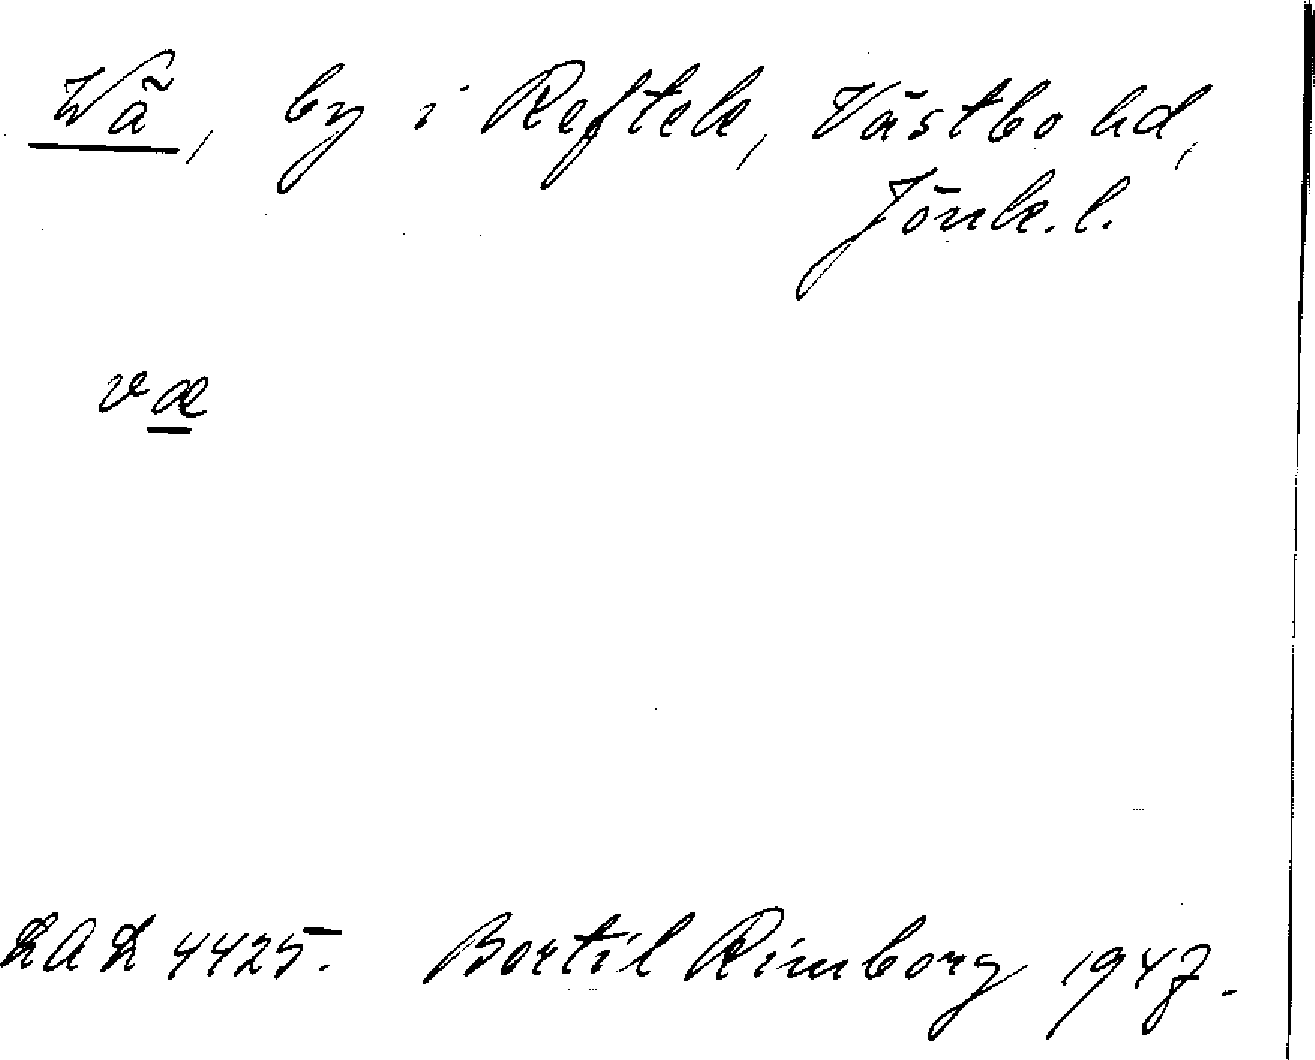 Wä, by i Reftele, Västbo hd,
Jönk. l.
væ
LAL 4425. Bertil Rimborg 1947.